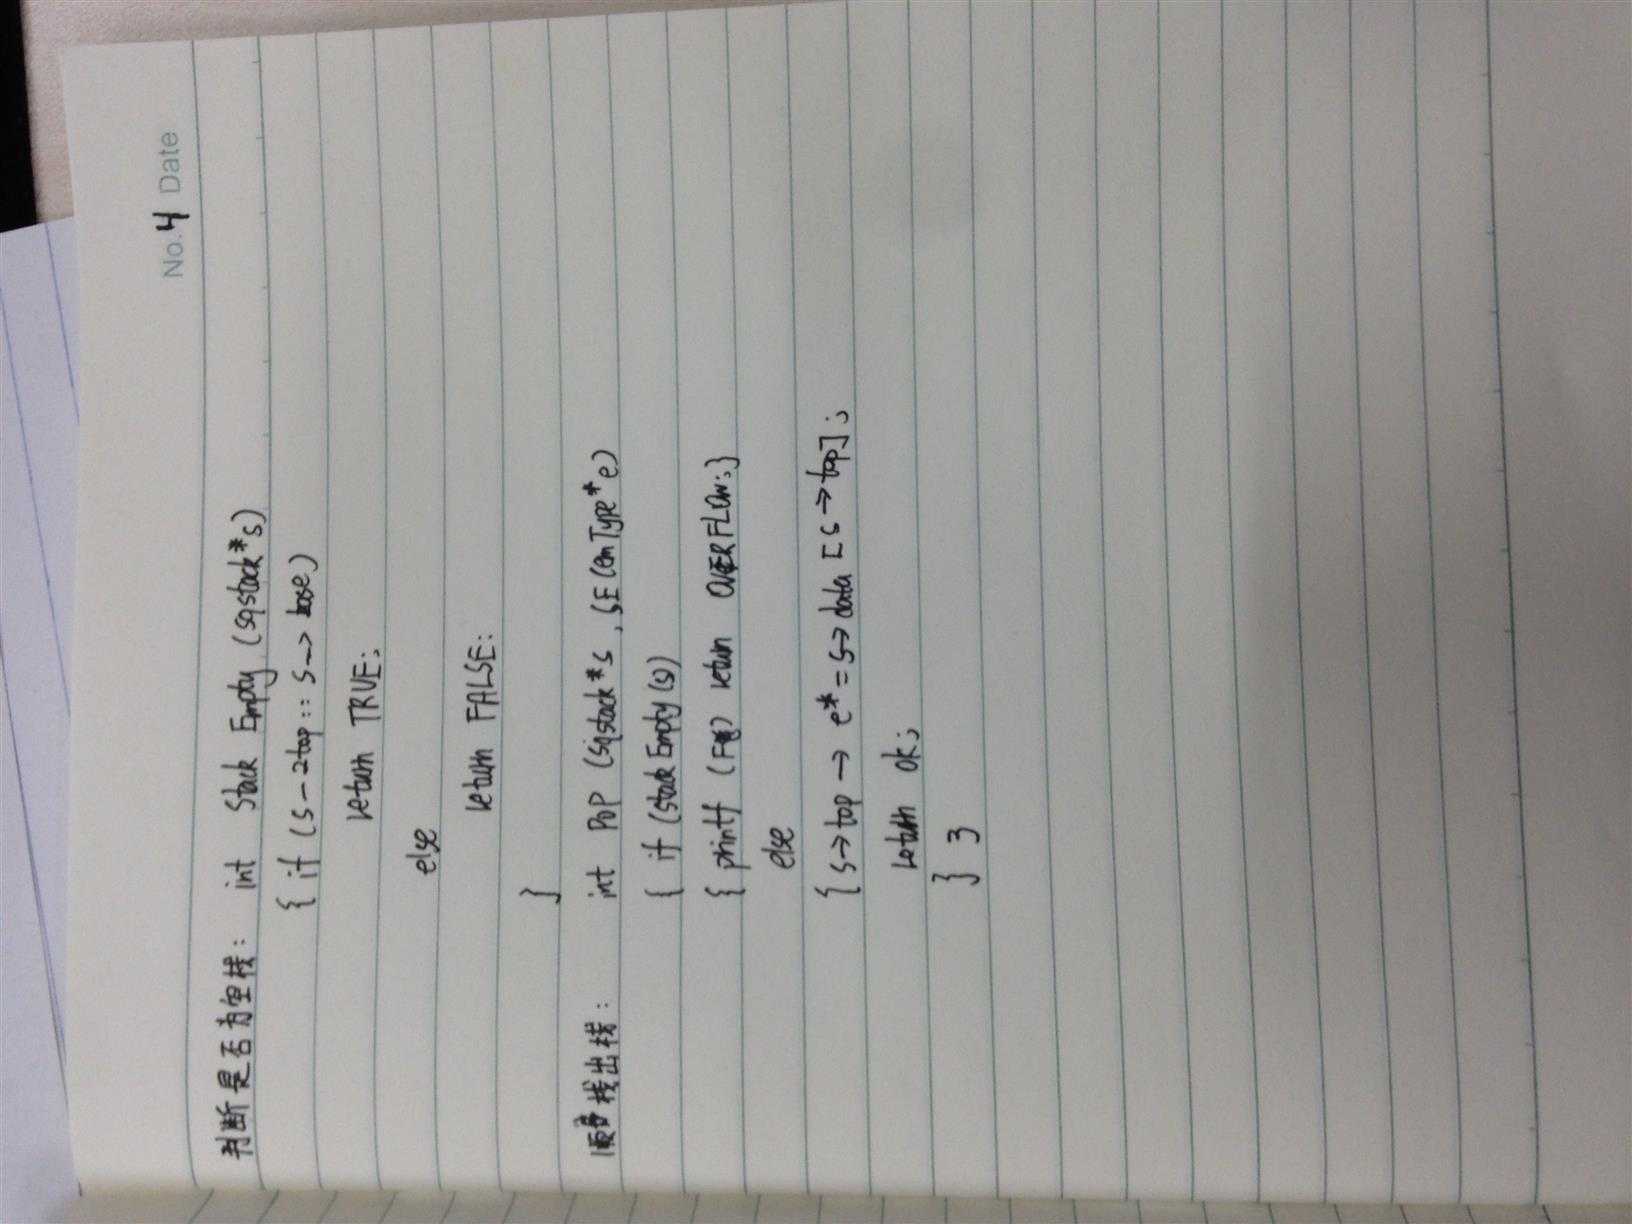 No. 4 Date
判断是否为空栈: int Stack Empty (sqstack*s)
{ if (s-2top :: s->base)
return TRUE;
else
return FALSE:
}
顺序栈出栈: int POP (sqstack*s, SElemType*e)
{ if (stack Empty (s))
{ printf ( ) return OVERFLOW;}
else
{s->top → e*=s->data [s->top];
return ok;
} }